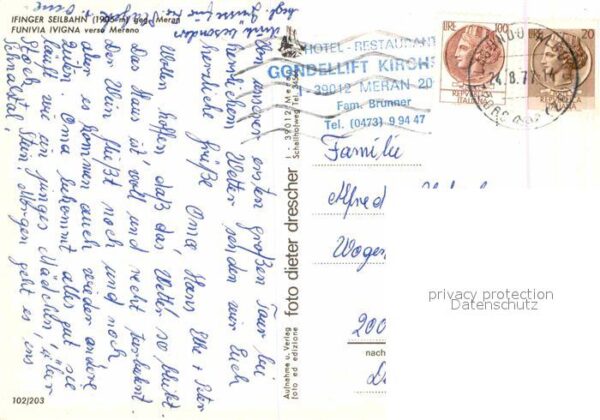 IFINGER SEILBAHN (1905 m) geg. Meran
FUNIVIA IVIGNA verso Merano
Von unserer ersten großen Tour bei
herrlichem Wetter senden wir Euch
herzliche Grüße Oma Hans Elke + Peter
Wetter hoffen, daß das Wetter so bleibt.
Das Haus ist voll und recht turbulent.
Der Wein fließt noch und noch
aber es kommen auch wieder andere
Zeiten. Oma bekommt alles gut sie
läuft wie ein junges Mädchen, über
Stock + Stein. Morgen geht es ins
Schnalstal.
102/203
Aufnahme u. Verlag
foto ed edizione
foto dieter drescher
39012 Meran
HOTEL-RESTAURANT
GONDELLIFT KIRCHS
39012 MERAN 20
Fam. Brunner
Tel. (0473) 9 94 47
LIRE 100
REPUBBLICA
ITALIANA
20
REPUBBLICA
ITALIANA
Familie
Alfred
Wogen
200
nach
privacy protection
Datenschutz